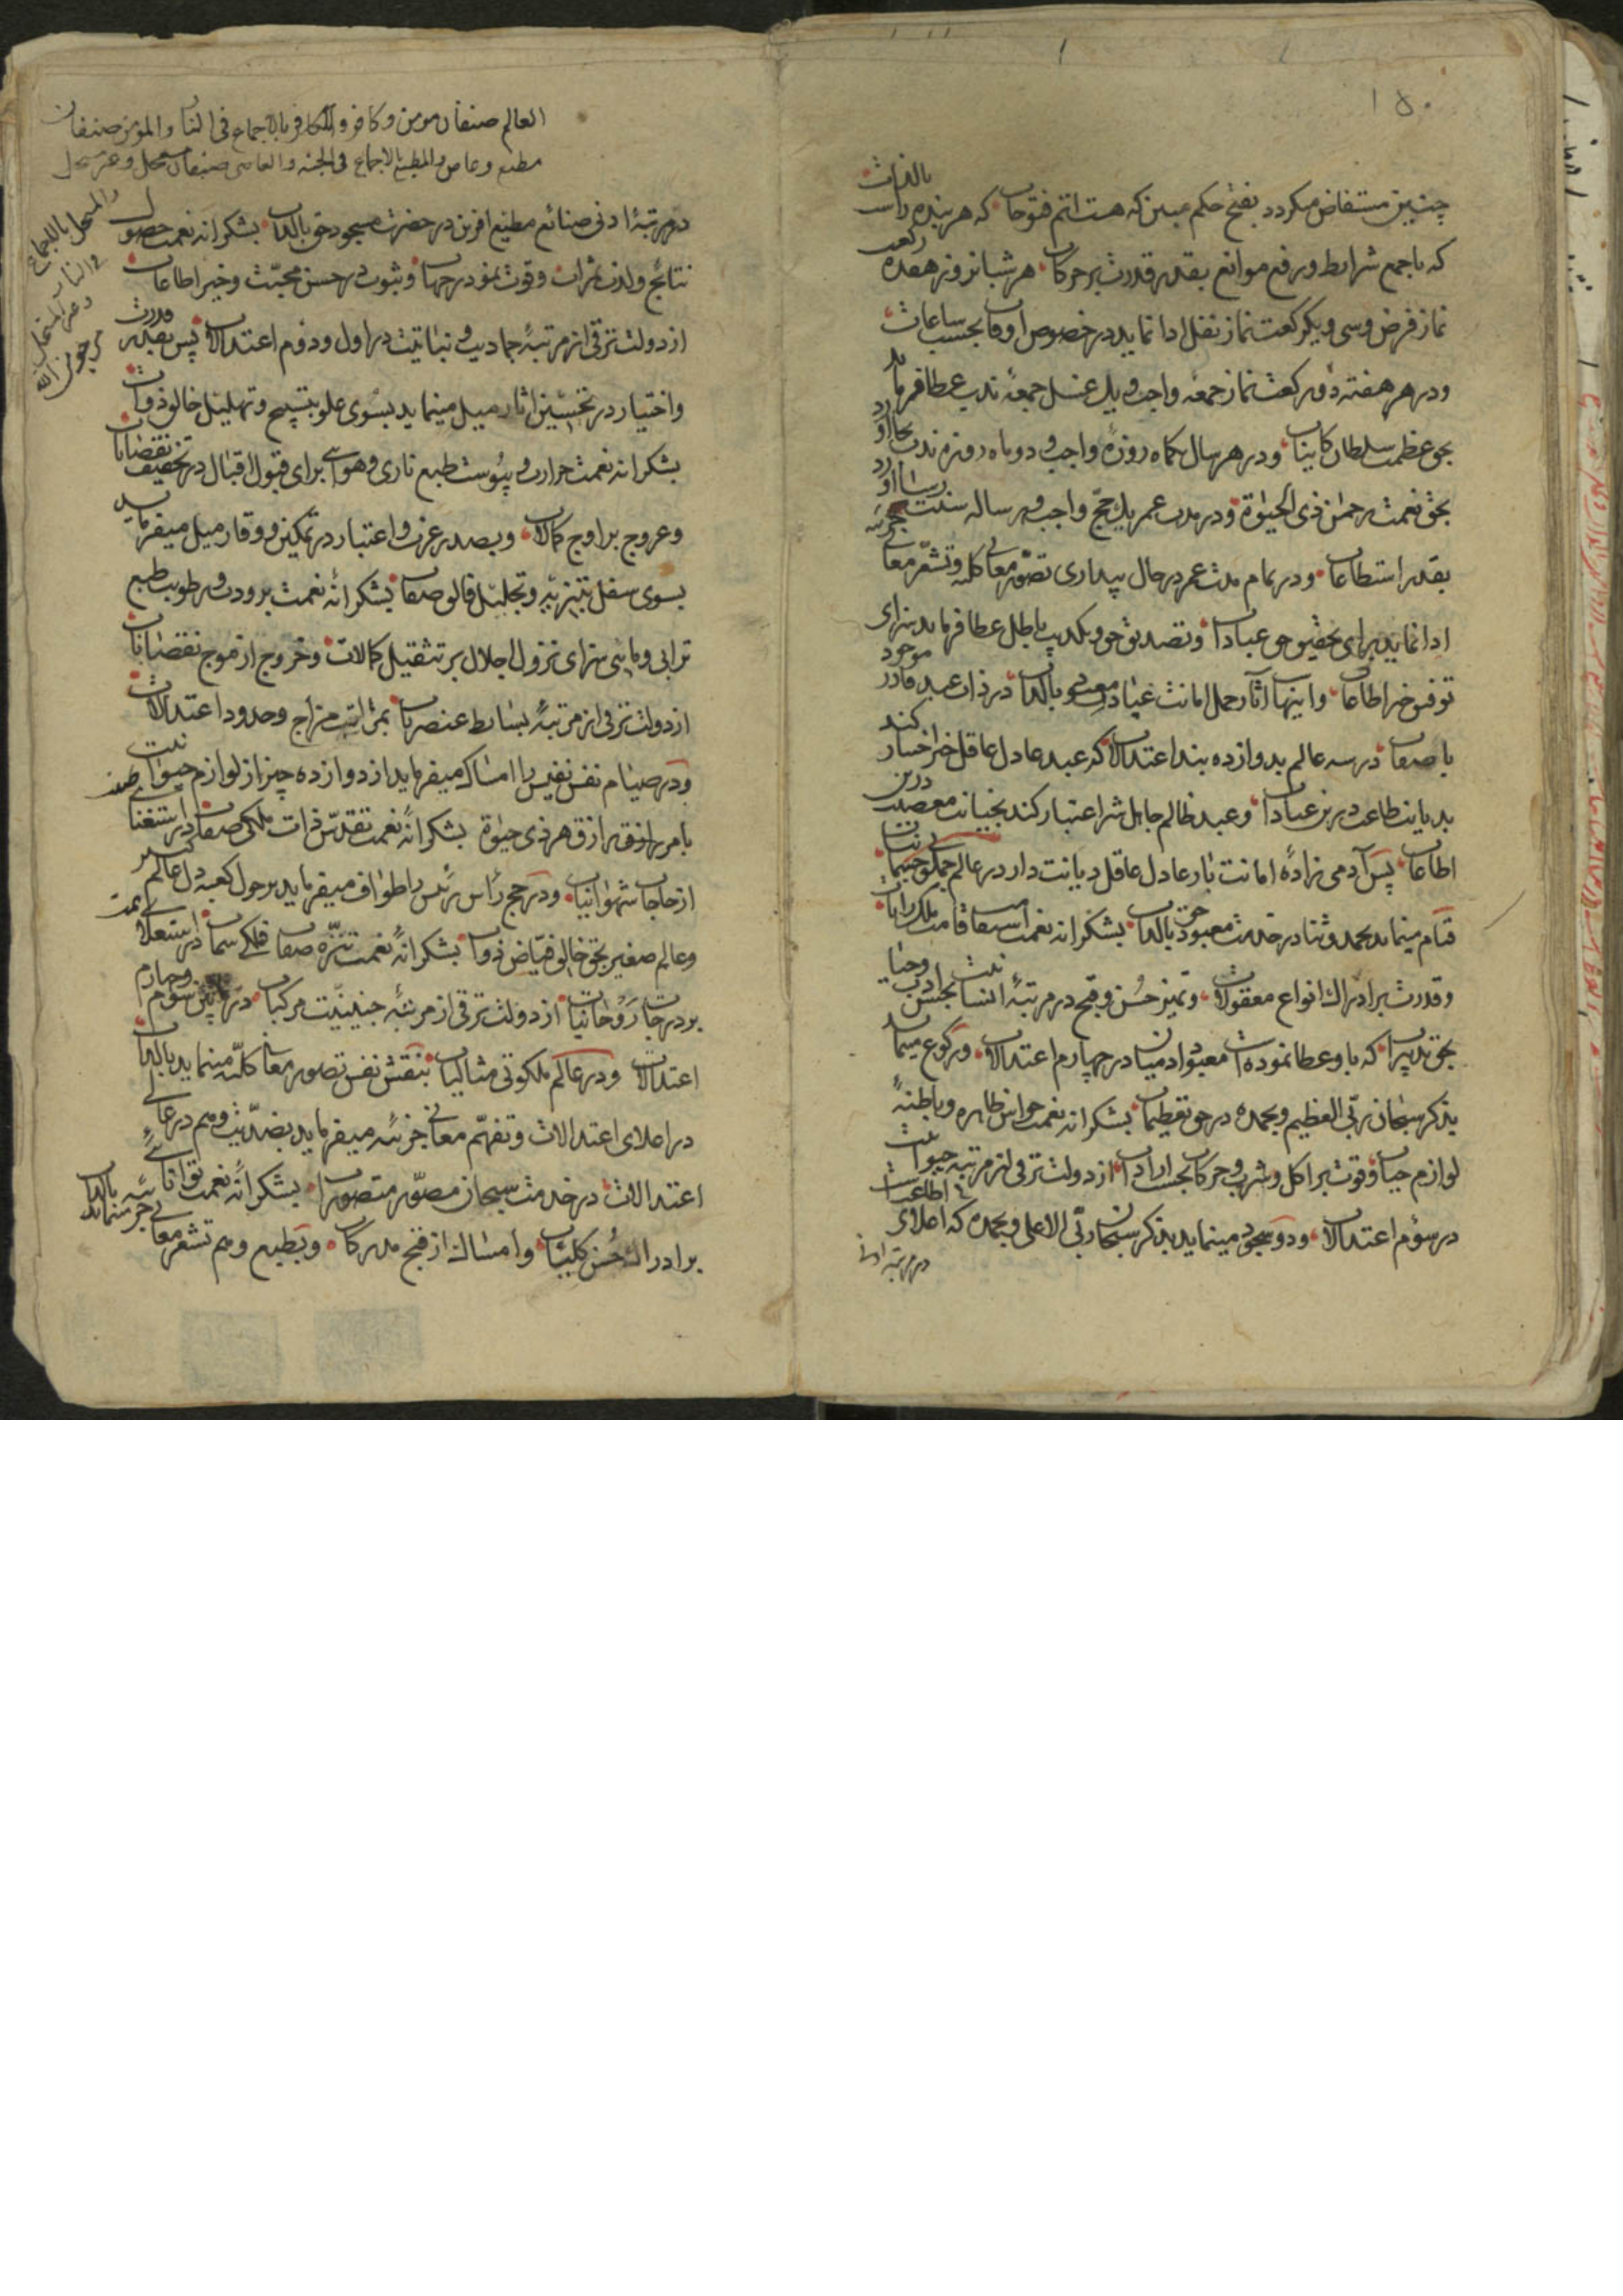 ۱۵۰
چنین مستفاض میکردد بفتح حکم مبین که هست اتم فتوحات که هر بنده راست بالذات
که باجمع شرایط ورفع موانع بقدر قدرت بر حرکات هر شبانروز هفده رکعت
نماز فرض وسی ویکرکعت نماز نفل ادا نماید در خصوص اوقات بحسب ساعات
ودر هر هفته دو رکعت نماز جمعه واجب ویک غسل جمعه ندب عطا فرماید
بحق عظمت سلطان کاینات ودر هر سال یکماه روزه واجب و دو ماه روزه ندب بجا اورد
بحق نعمت رحمن ذی الحیوة ودر مدت عمر یک حج واجب و هر ساله سنت
بقدر استطاعات ودر تمام مدت عمر در حال بیداری تصور معانی کلیه وتشعر معانی جزئیه
ادا نماید برای تحقیق حق عبادات وتصدیق حق وتکذیب باطل عطا فرماید سزای
توفیق خیر اطاعات واینها اثار حمل امانت عبادت معبود بالذات در ذات عبد قادر موجود
با صفات در سه عالم بدوازده بند اعتدالات که عبد عادل عاقل خیر اختیار کند
بدیانت طاعت درین عبادات وعبد ظالم جاهل شر اعتبار کند بخیانت معصیت درین
اطاعات پس آدمی زاده امانت بار عادل عاقل دیانت دار در عالم ملکی جسمانیات
قیام مینماید بحمد وثنا در خدمت معبود حق بالذات بشکرانه نعمت استقامت
وقدرت بر ادراک انواع معقولات وتمیز حسن وقبح در مرتبه انسانیت بحسن ادب وحیا
بحق تدبیرات که باو عطا نموده است معبود ادمیان در چهارم اعتدالات ورکوع مینماید
بذکر سبحان ربی العظیم وبحمده در حق تعظیمات بشکرانه نعمت حواس ظاهره وباطنه
لوازم حیات وقوت بر اکل وشرب وحرکات بحسب ارادات از دولت ترقی از مرتبه حیوانیت
در سوم اعتدالات ودو سجود مینماید بذکر سبحان ربی الاعلی وبحمده که اعلای اطاعتست
در مرتبه ادنی
العالم صنفان مومن وکافر والکافر بالاجماع فی النار والمومن صنفان
مطیع وعاص والمطیع بالاجماع فی الجنه والعاصی صنفان مستحل وغیر مستحل
والمستحل بالاجماع
فی النار
وغیر المستحل
مرجون الله
در مرتبه ادنی صنائع مطیع افرین در حضرت مسجود حق بالذات بشکرانه نعمت حصول
نتائج ولذت ثمرات وقوت نمو در جهات وثبوت در حسن محبت وخیر اطاعات
از دولت ترقی از مرتبه جمادیت ونباتیت در اول ودوم اعتدالات پس بقدر قدرت
واختیار در نخستین اثار میل مینماید بسوی علو بتسبیح وتهلیل خالق ذوات
بشکرانه نعمت حرارت ویبوست طبع ناری وهوائی برای قبول اقبال در تخفیف نقصانات
وعروج بر اوج کمالات وبصدر عزت واعتبار در تمکین ووقار میل میفرماید
بسوی سفل بتنزیه وتجلیل خالق صفات بشکرانه نعمت برودت ورطوبت طبع
ترابی ومائی سزای نزول اجلال بر تثقیل کمالات وخروج از موج نقصانات
از دولت ترقی از مرتبه بسایط عنصریات بمراتب مزاج وحدود اعتدالات
ودر صیام نفس نفیس را امساک میفرماید از دوازده چیز از لوازم حیوانیت
بامر رازق رازق هر ذی حیوة بشکرانه نعمت تقدس ذات ملکی صفات در استغنا
از حاجات شهوانیات ودر حج رأس رئیس را طواف میفرماید بر حول کعبه دل عالم کبیر
وعالم صغیر بحق خالق فیاض ذوات بشکرانه نعمت تنزه صفات فلکی سمات در استعلا
بر درجات روحانیات از دولت ترقی از مرتبه جنینیت مرکبات در سوم وچهارم
اعتدالات ودر عالم ملکوتی مثالیات بنقش نفس تصور معانی کلیه مینماید بالذات
در اعلای اعتدالات وتفهم معانی جزئیه میفرماید بضدیت وهم در عالی
اعتدالات در خدمت سبحان مصور متصورات بشکرانه نعمت توانائی
بر ادراک حسن کلیات وامساک از قبح مدرکات وبطبع وهم تشعر معانی جزئیه مینماید بالذات